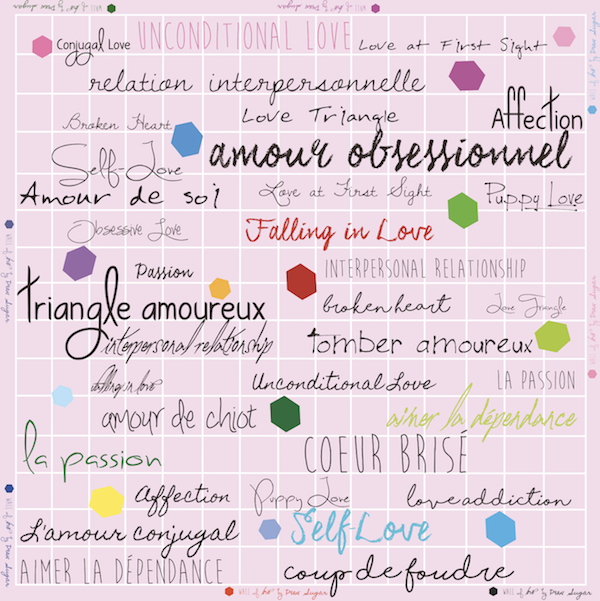 WALL of ART by Drew Sugar
WALL of ART by Drew Sugar
Conjugal Love
UNCONDITIONAL LOVE
Love at First Sight
relation interpersonnelle
Affection
Broken Heart
Love Triangle
amour obsessionnel
Self-Love
Amour de soi
Love at First Sight
Puppy Love
Obsessive Love
Falling in Love
Passion
INTERPERSONAL RELATIONSHIP
triangle amoureux
broken heart
Love Triangle
interpersonal relationship
tomber amoureux
falling in love
Unconditional Love
LA PASSION
amour de chiot
aimer la dépendance
la passion
COEUR BRISÉ
Affection
Puppy Love
love addiction
L'amour conjugal
Self-Love
AIMER LA DÉPENDANCE
coup de foudre